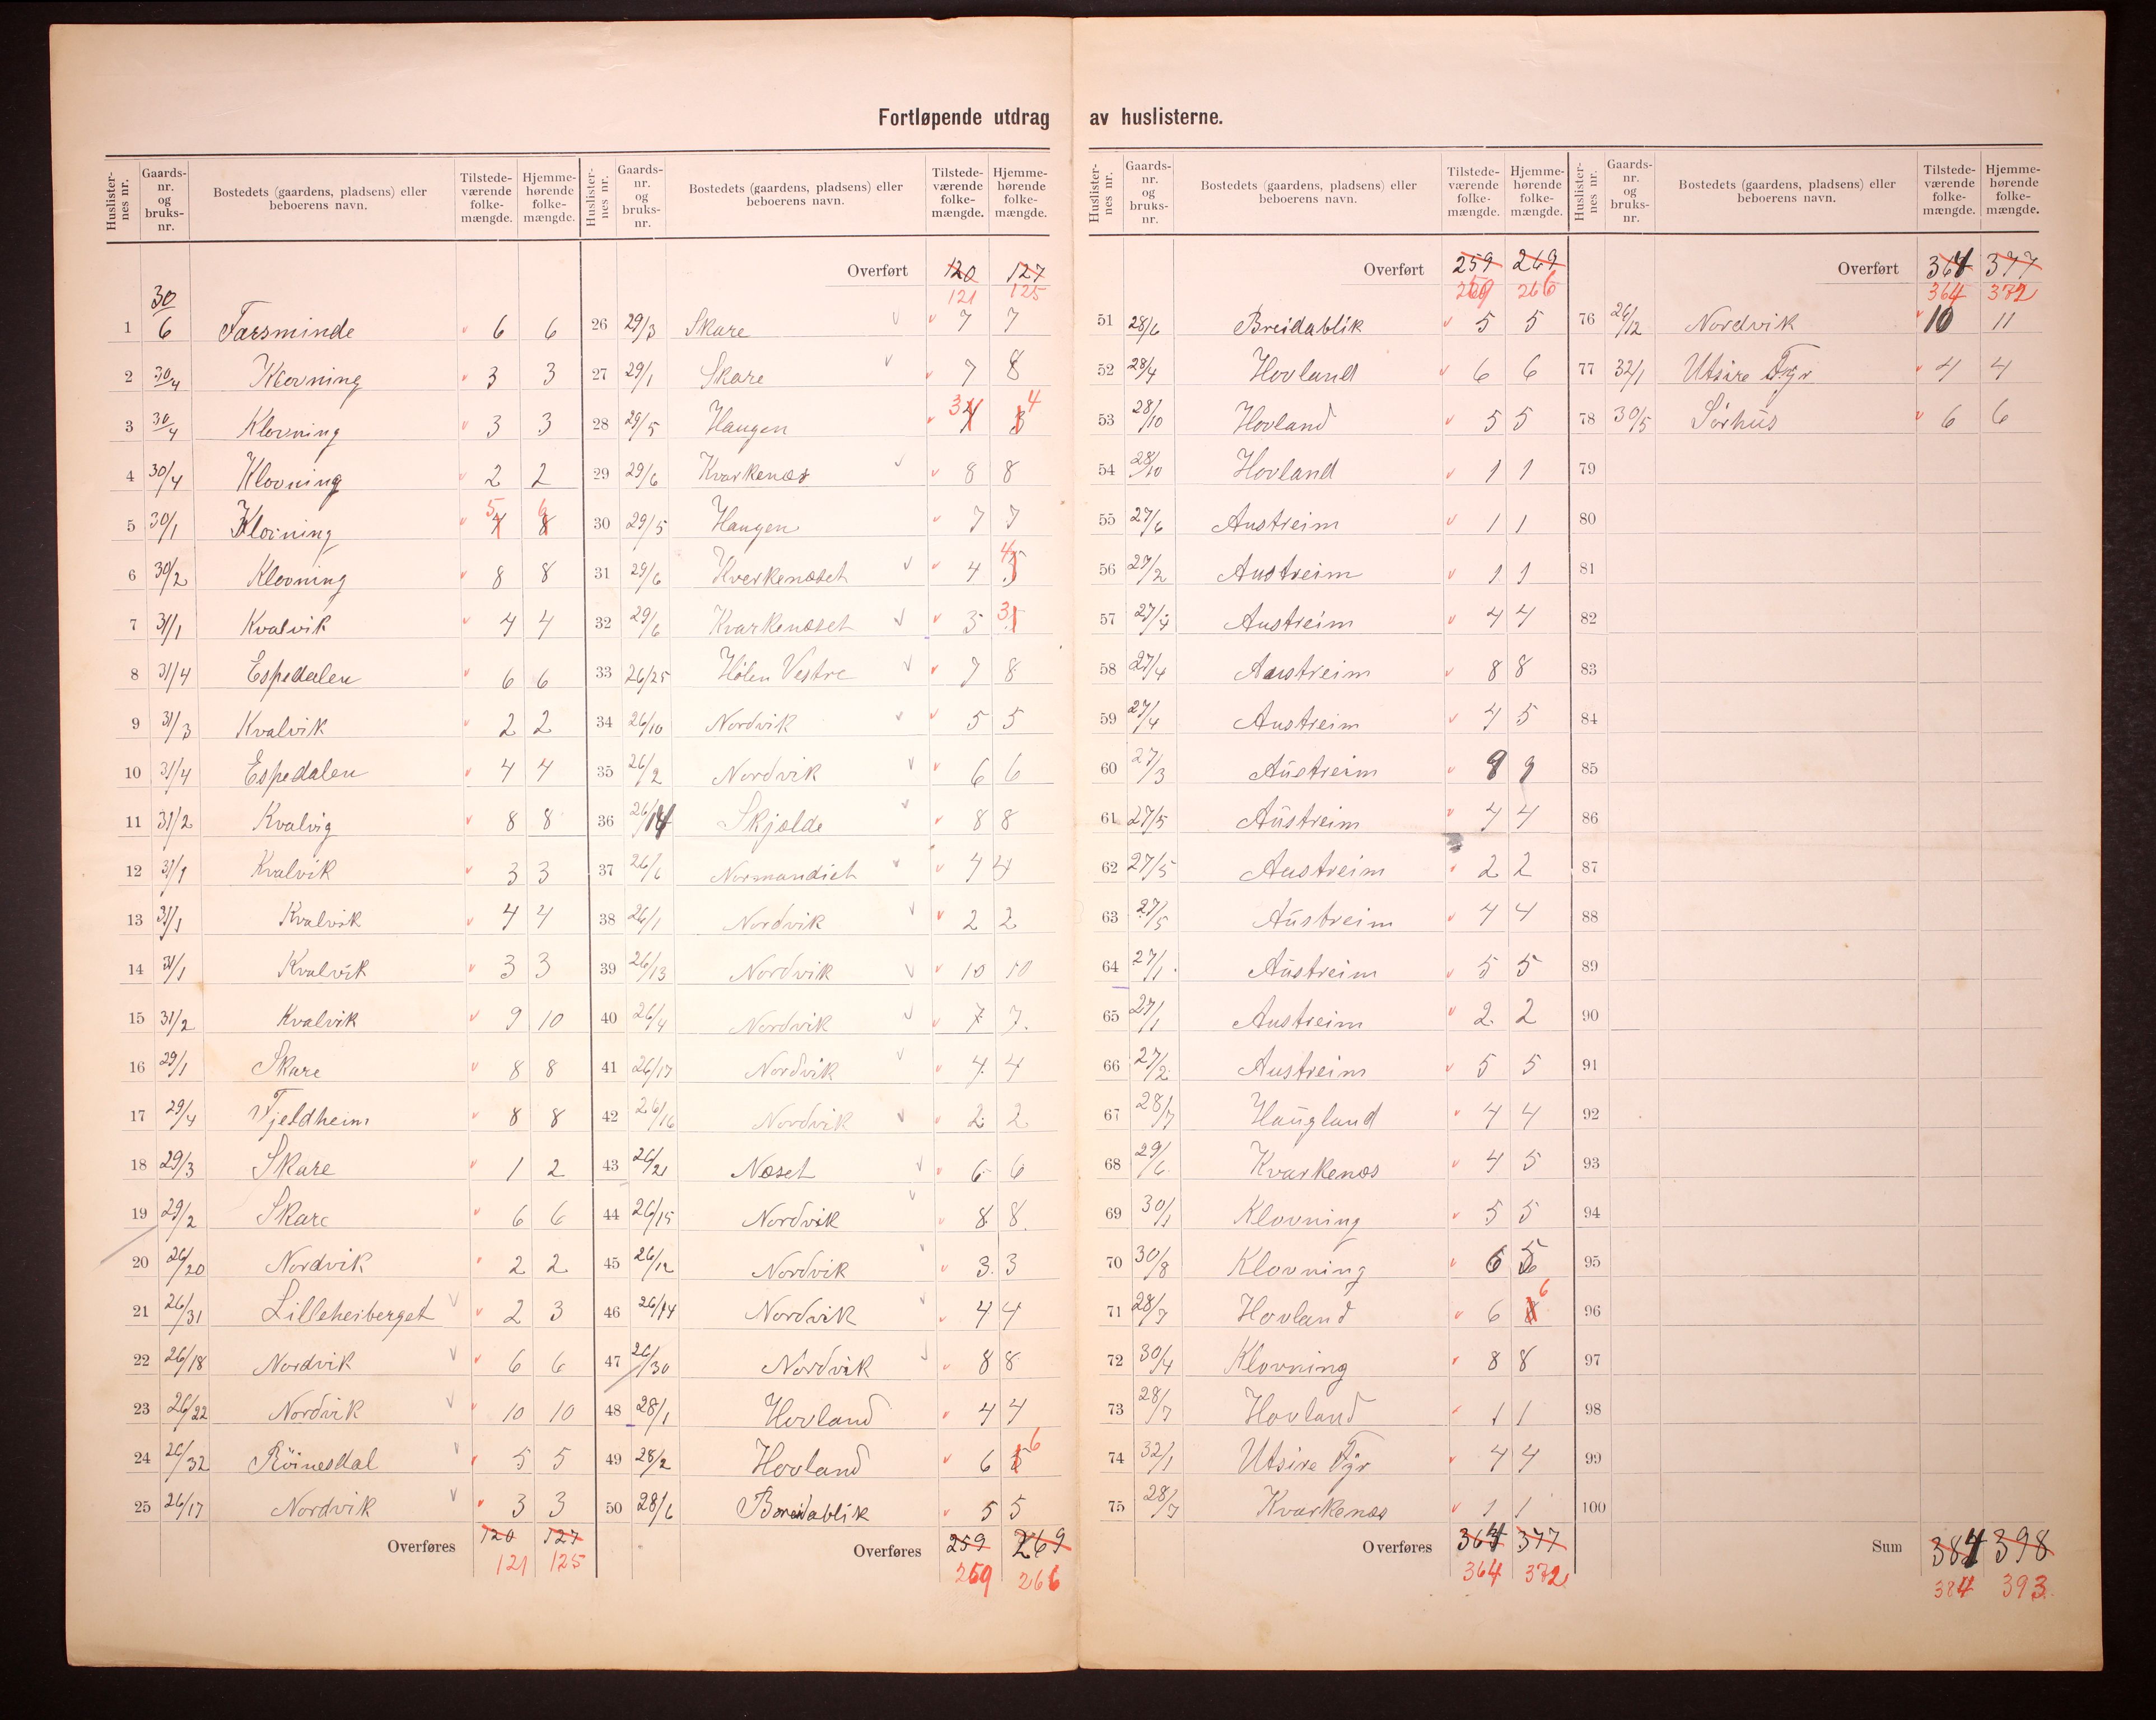 Fortløpende utdrag av huslisternе.
Huslister-nes nr. | Gaards-nr. og bruks-nr. | Bostedets (gaardens, pladsens) eller beboerens navn. | Tilstede-værende folke-mængde. | Hjemme-hørende folke-mængde.
1 30/6 Farsminde 6 6
2 30/4 Klovning 3 3
3 30/4 Klovning 3 3
4 30/4 Klovning 2 2
5 30/1 Klovning 4 5 8 6
6 30/2 Klovning 8 8
7 31/1 Kvalvik 4 4
8 31/4 Espedalen 6 6
9 31/3 Kvalvik 2 2
10 31/4 Espedalen 4 4
11 31/2 Kvalvig 8 8
12 31/1 Kvalvik 3 3
13 31/1 Kvalvik 4 4
14 31/1 Kvalvik 3 3
15 31/2 Kvalvik 9 10
16 29/1 Skare 8 8
17 29/4 Fjeldheim 8 8
18 29/3 Skare 1 2
19 29/2 Skare 6 6
20 26/20 Nordvik 2 2
21 26/31 Lilleheiberget 2 3
22 26/18 Nordvik 6 6
23 26/22 Nordvik 10 10
24 26/32 Röinesdal 5 5
25 26/17 Nordvik 3 3
Overføres 120 127
121 125
Huslister-nes nr. | Gaards-nr. og bruks-nr. | Bostedets (gaardens, pladsens) eller beboerens navn. | Tilstede-værende folke-mængde. | Hjemme-hørende folke-mængde.
Overført 120 127
121 125
26 29/3 Skare 7 7
27 29/1 Skare 7 8
28 29/5 Haugen 4 3 3 4
29 29/6 Kvarkenæs 8 8
30 29/5 Haugen 7 7
31 29/6 Kverkenæset 4 5 4
32 29/6 Kvarkenæset 3 3
33 26/25 Hølen Vestre 7 8
34 26/10 Nordvik 5 5
35 26/2 Nordvik 6 6
36 26/14 Skjælde 8 8
37 26/6 Normandiet 4 4
38 26/1 Nordvik 2 2
39 26/13 Nordvik 10 10
40 26/4 Nordvik 7 7
41 26/17 Nordvik 4 4
42 26/16 Nordvik 2 2
43 26/21 Næset 6 6
44 26/15 Nordvik 8 8
45 26/12 Nordvik 3 3
46 26/14 Nordvik 4 4
47 26/30 Nordvik 8 8
48 28/1 Hovland 4 4
49 28/2 Hovland 6 5 6
50 28/6 Breidablik 5 5
Overføres 259 269
259 266
Huslister-nes nr. | Gaards-nr. og bruks-nr. | Bostedets (gaardens, pladsens) eller beboerens navn. | Tilstede-værende folke-mængde. | Hjemme-hørende folke-mængde.
Overført 259 269
259 266
51 28/6 Breidablik 5 5
52 28/4 Hovland 6 6
53 28/10 Hovland 5 5
54 28/10 Hovland 1 1
55 27/6 Austreim 1 1
56 27/2 Austreim 1 1
57 27/4 Austreim 4 4
58 27/4 Austreim 8 8
59 27/4 Austreim 4 5
60 27/3 Austreim 9 9
61 27/5 Austreim 4 4
62 27/5 Austreim 2 2
63 27/5 Austreim 4 4
64 27/1 Austreim 5 5
65 27/1 Austreim 2 2
66 27/2 Austreim 5 5
67 28/7 Haugland 4 4
68 29/6 Kvarkenæs 4 5
69 30/1 Klovning 5 5
70 30/8 Klovning 6 5
71 28/7 Hovland 6 8 6
72 30/4 Klovning 8 8
73 28/7 Hovland 1 1
74 32/1 Utsire Fyr 4 4
75 28/7 Kvarkenæs 1 1
Overføres 364 377
364 372
Huslister-nes nr. | Gaards-nr. og bruks-nr. | Bostedets (gaardens, pladsens) eller beboerens navn. | Tilstede-værende folke-mængde. | Hjemme-hørende folke-mængde.
Overført 364 377
364 372
76 26/12 Nordvik 10 11
77 32/1 Utsire Fyr 4 4
78 30/5 Sørhus 6 6
79
80
81
82
83
84
85
86
87
88
89
90
91
92
93
94
95
96
97
98
99
100
Sum 384 398
384 393